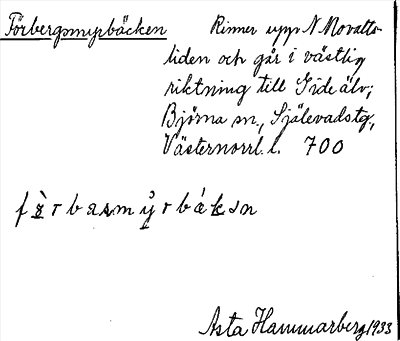 Förbergsmyrbäcken Rinner upp N Movatts-
liden och går i västlig
riktning till Gideälv;
Björna sn., Själevadstg.,
Västernorrl. l. 700
Asta Hammarberg 1933